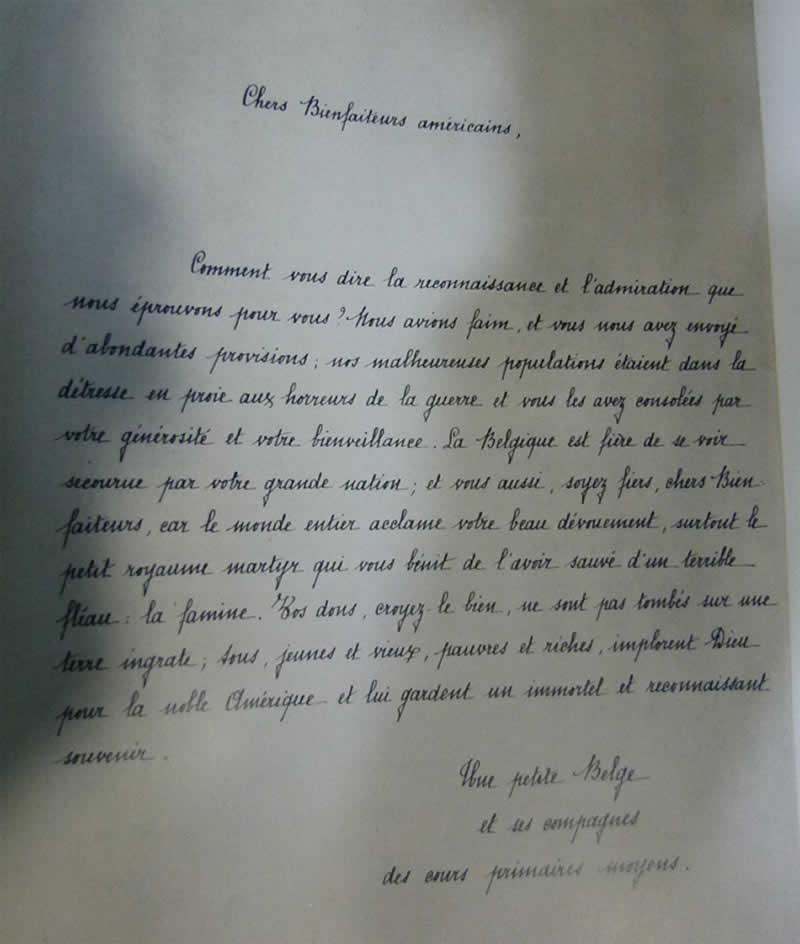 Chers Bienfaiteurs américains,
Comment vous dire la reconnaissance et l'admiration que
nous éprouvons pour vous? Nous avions faim, et vous nous avez envoyé
d'abondantes provisions; nos malheureuses populations étaient dans la
détresse en proie aux horreurs de la guerre et vous les avez consolées par
votre générosité et votre bienveillance. La Belgique est fière de se voir
secourue par votre grande nation; et vous aussi, soyez fiers, chers Bien-
faiteurs, car le monde entier acclame votre beau dévouement, surtout le
petit royaume martyr qui vous bénit de l'avoir sauvé d'un terrible
fléau: la famine. Vos dons, croyez-le bien, ne sont pas tombés sur une
terre ingrate; tous, jeunes et vieux, pauvres et riches, implorent Dieu
pour la noble Amérique et lui gardent un immortel et reconnaissant
souvenir.
Une petite Belge
et ses compagnes
des cours primaires moyens.